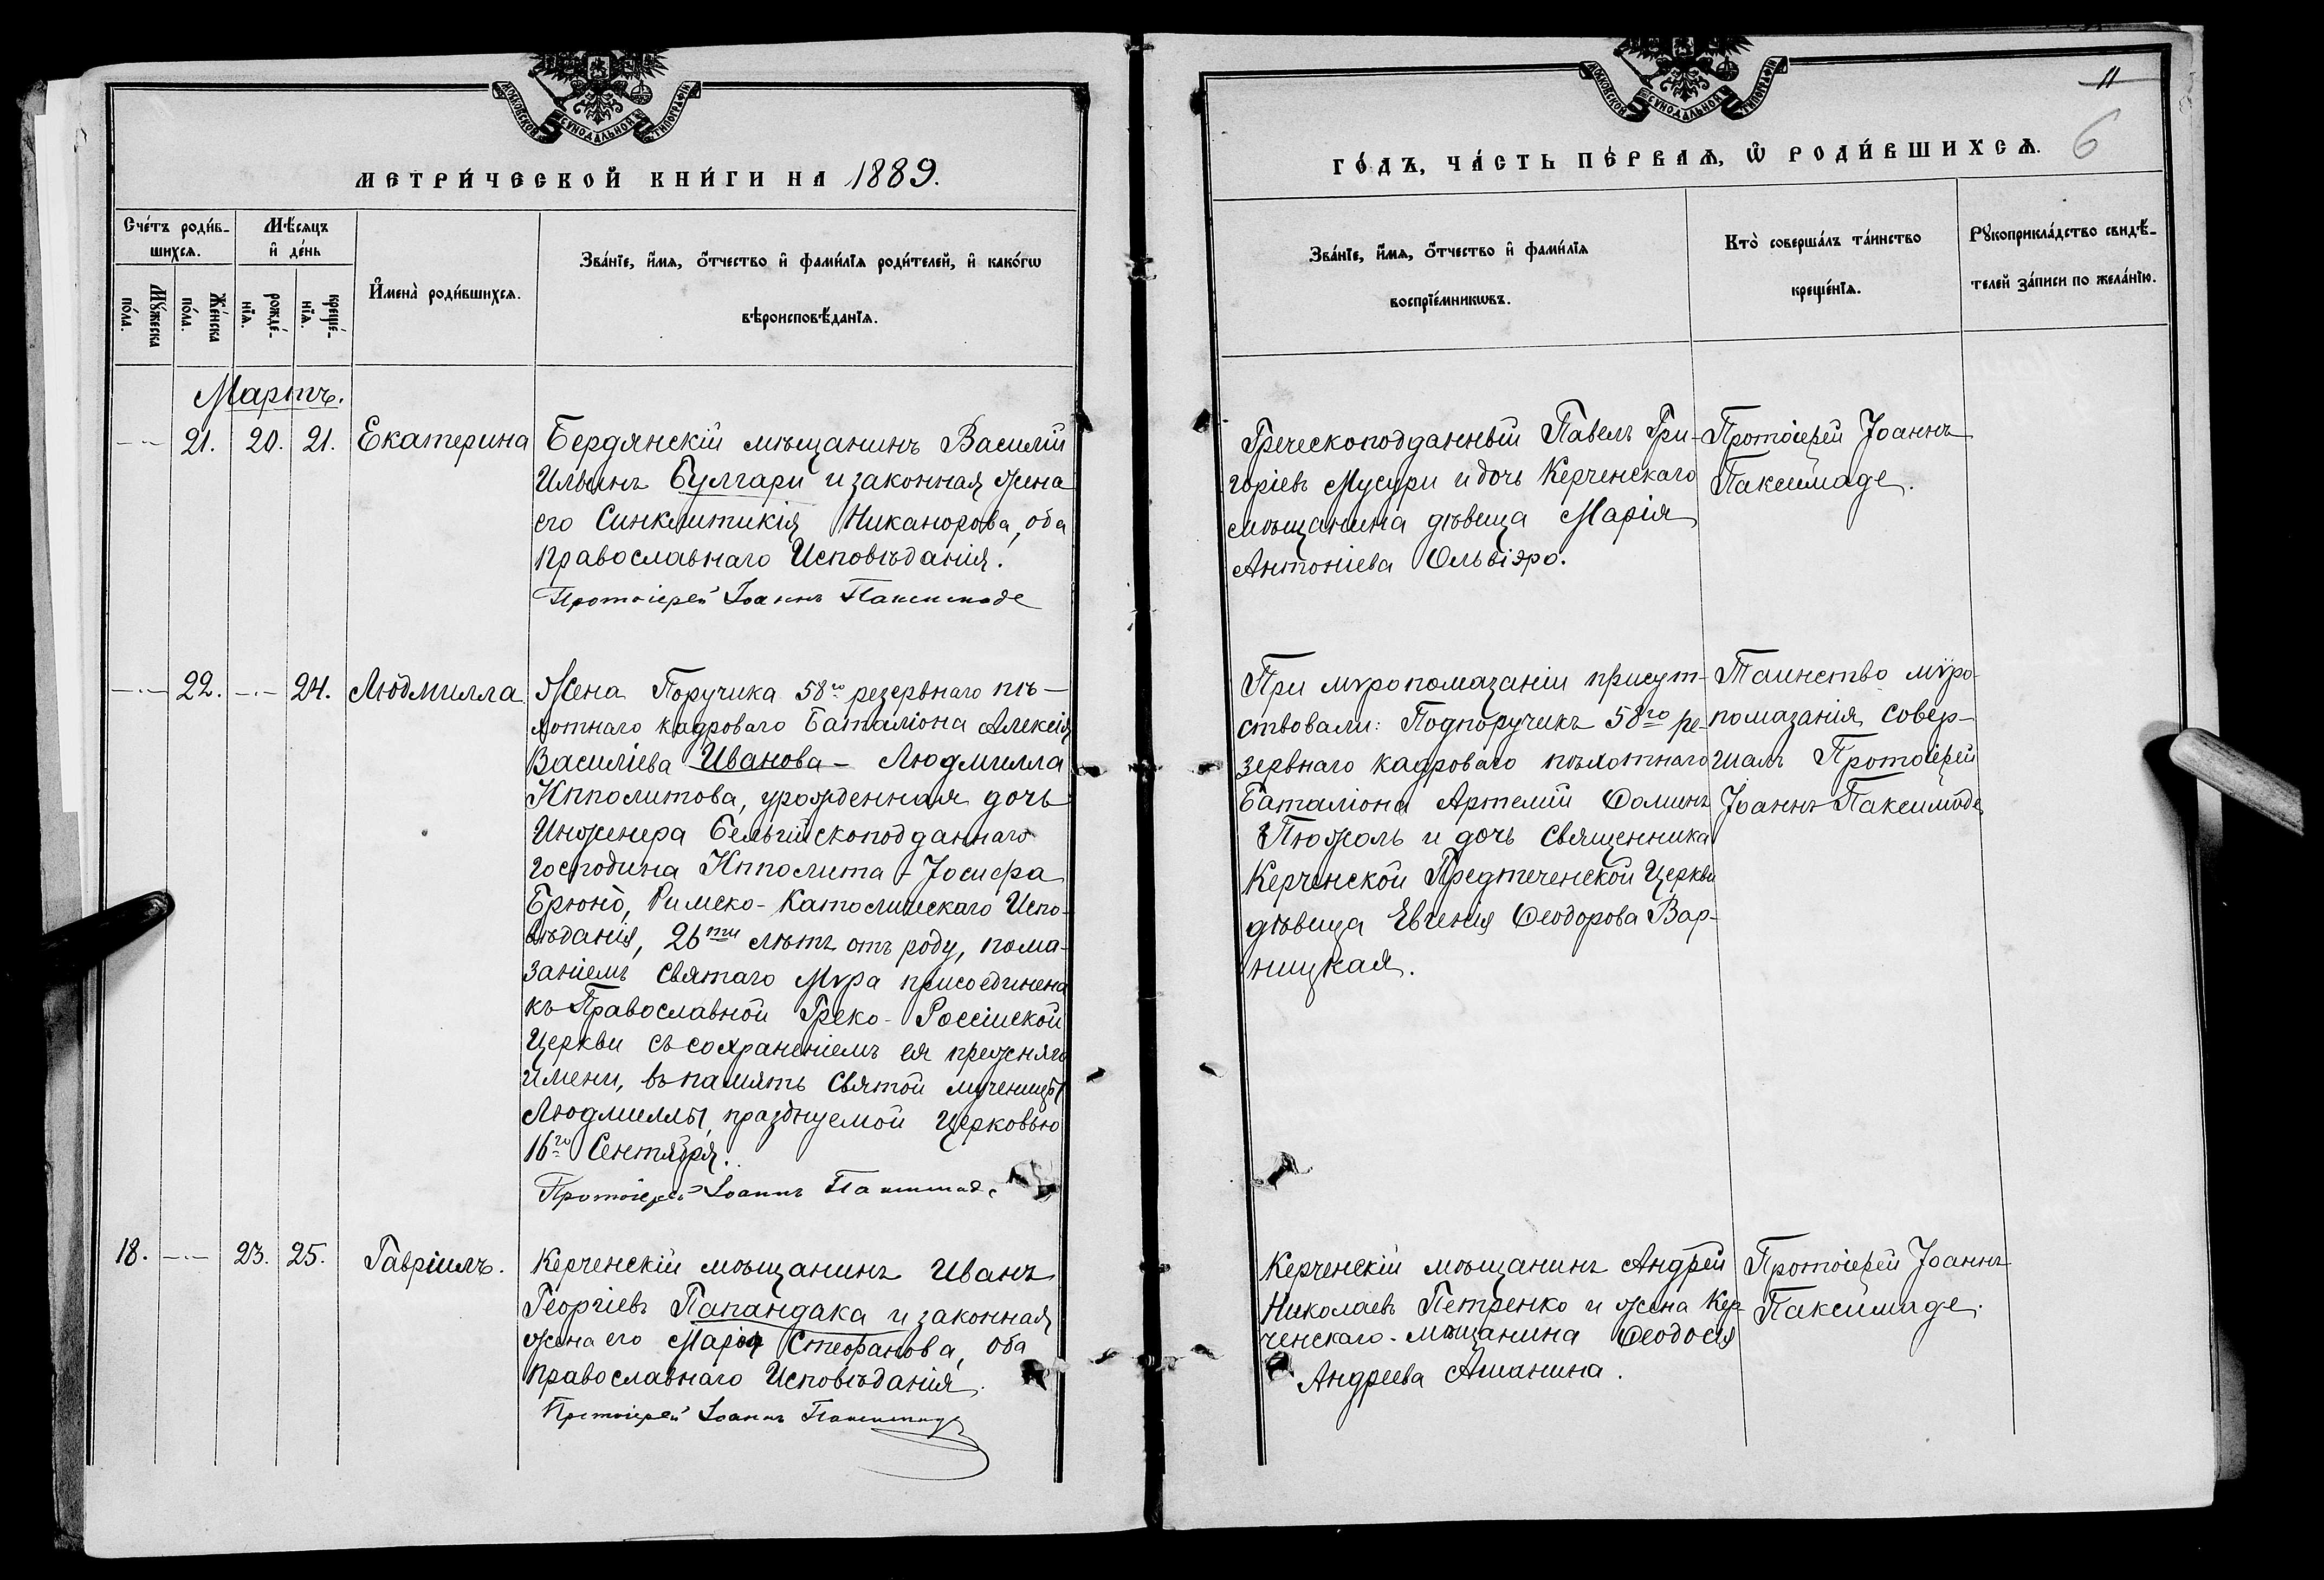 МОСКОВСКОЙ СѴНОДАЛЬНОЙ ТИПОГРАФІИ
МЕТРИ́ЧЕСКОЙ КНИ́ГИ НА 1889.
Сче́тъ роди́в-
шихсѧ.
Мѣ́сѧцъ
и҆ де́нь
Мꙋ́жеска
по́ла.
Же́нска
по́ла.
рожде́-
нїѧ.
креще́-
нїѧ.
И҆мена̀ роди́вшихсѧ.
Зва́нїе, и҆́мѧ, ѻ҆́тчество и҆ фами́лїѧ роди́телей, и҆ како́гѡ
вѣроисповѣ́данїѧ.
Мартъ.
21. 20. 21. Екатерина
Бердянскій мѣщанинъ Василій
Ильинъ Булгари и законная жена
его Синклитикія Никанорова, оба
Православнаго Исповѣданія.
Протоіерей Іоаннъ Паксимаде
22. 24. Людмилла
Жена Поручика 58го резервнаго пѣ-
хотнаго кадроваго Баталіона Алексія
Василіева Иванова - Людмилла
Ипполитова, урожденная дочь
Инженера Бельгійскоподданнаго
господина Ипполита - Іосифа
Брюно, Римско-Католическаго Испо-
вѣданія, 26ти лѣтъ отъ роду, пома-
заніемъ Святаго Мѵра присоединена
къ Православной Греко-Россійской
Церкви съ сохраненіемъ ея прежняго
имени, въ память Святой мученицы
Людмиллы, празднуемой Церковью
16го Сентября.
Протоіерей Іоаннъ Паксимаде
18. 23. 25. Гавріилъ.
Керченскій мѣщанинъ Иванъ
Георгіевъ Папандака и законная
жена его Марія Стефанова, оба
Православнаго Исповѣданія.
Протоіерей Іоаннъ Паксимаде
МОСКОВСКОЙ СѴНОДАЛЬНОЙ ТИПОГРАФІИ
11
ГО́ДЪ, ЧА́СТЬ ПЕ́РВАѦ, Ѡ҆ РОДИ́ВШИХСѦ. 6
Зва́нїе, и҆́мѧ, ѻ҆́тчество и҆ фами́лїѧ
воспрїе́мникѡвъ.
Кто̀ соверша́лъ та́инство
креще́нїѧ.
Рꙋкоприкла́дство свидѣ́-
телей за́писи по жела́нїю.
Греческоподданный Павелъ Гри-
горіевъ Мусури и дочь Керченскаго
мѣщанина дѣвица Марія
Антоніева Ольвіэро.
Протоіерей Іоаннъ
Паксимаде.
При мѵропомазаніи присут-
ствовали: Подпоручикъ 58го ре-
зервнаго кадроваго пѣхотнаго
Баталіона Артемій Ѳоминъ
Пюжоль и дочь Священника
Керченской Предтеченской Церкви
дѣвица Евгенія Ѳеодорова Вар-
ницкая.
Таинство мѵро-
помазанія совер-
шалъ Протоіерей
Іоаннъ Паксимаде
Керченскій мѣщанинъ Андрей
Николаевъ Петренко и жена Кер-
ченскаго мѣщанина Ѳеодосія
Андреева Ашанина.
Протоіерей Іоаннъ
Паксимаде.